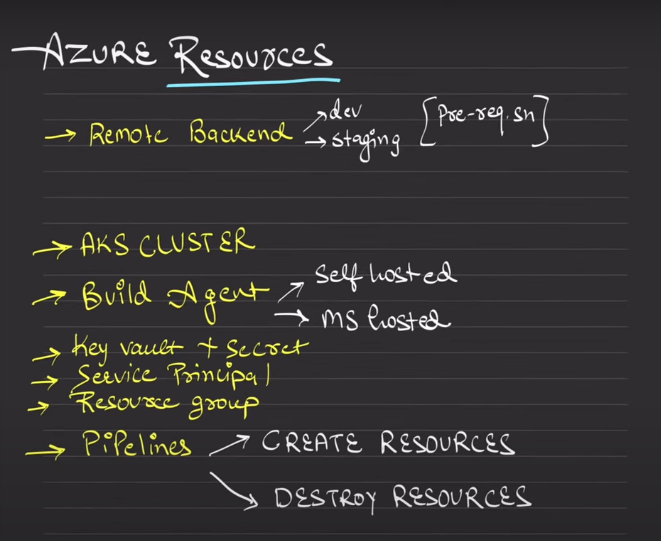 AZURE Resources
→ Remote Backend → dev [Pre-req.sh]
→ staging
→ AKS CLUSTER
→ Build Agent → Self hosted
→ MS hosted
→ Key vault + Secret
→ Service Principal
→ Resource group
→ Pipelines → CREATE RESOURCES
→ DESTROY RESOURCES